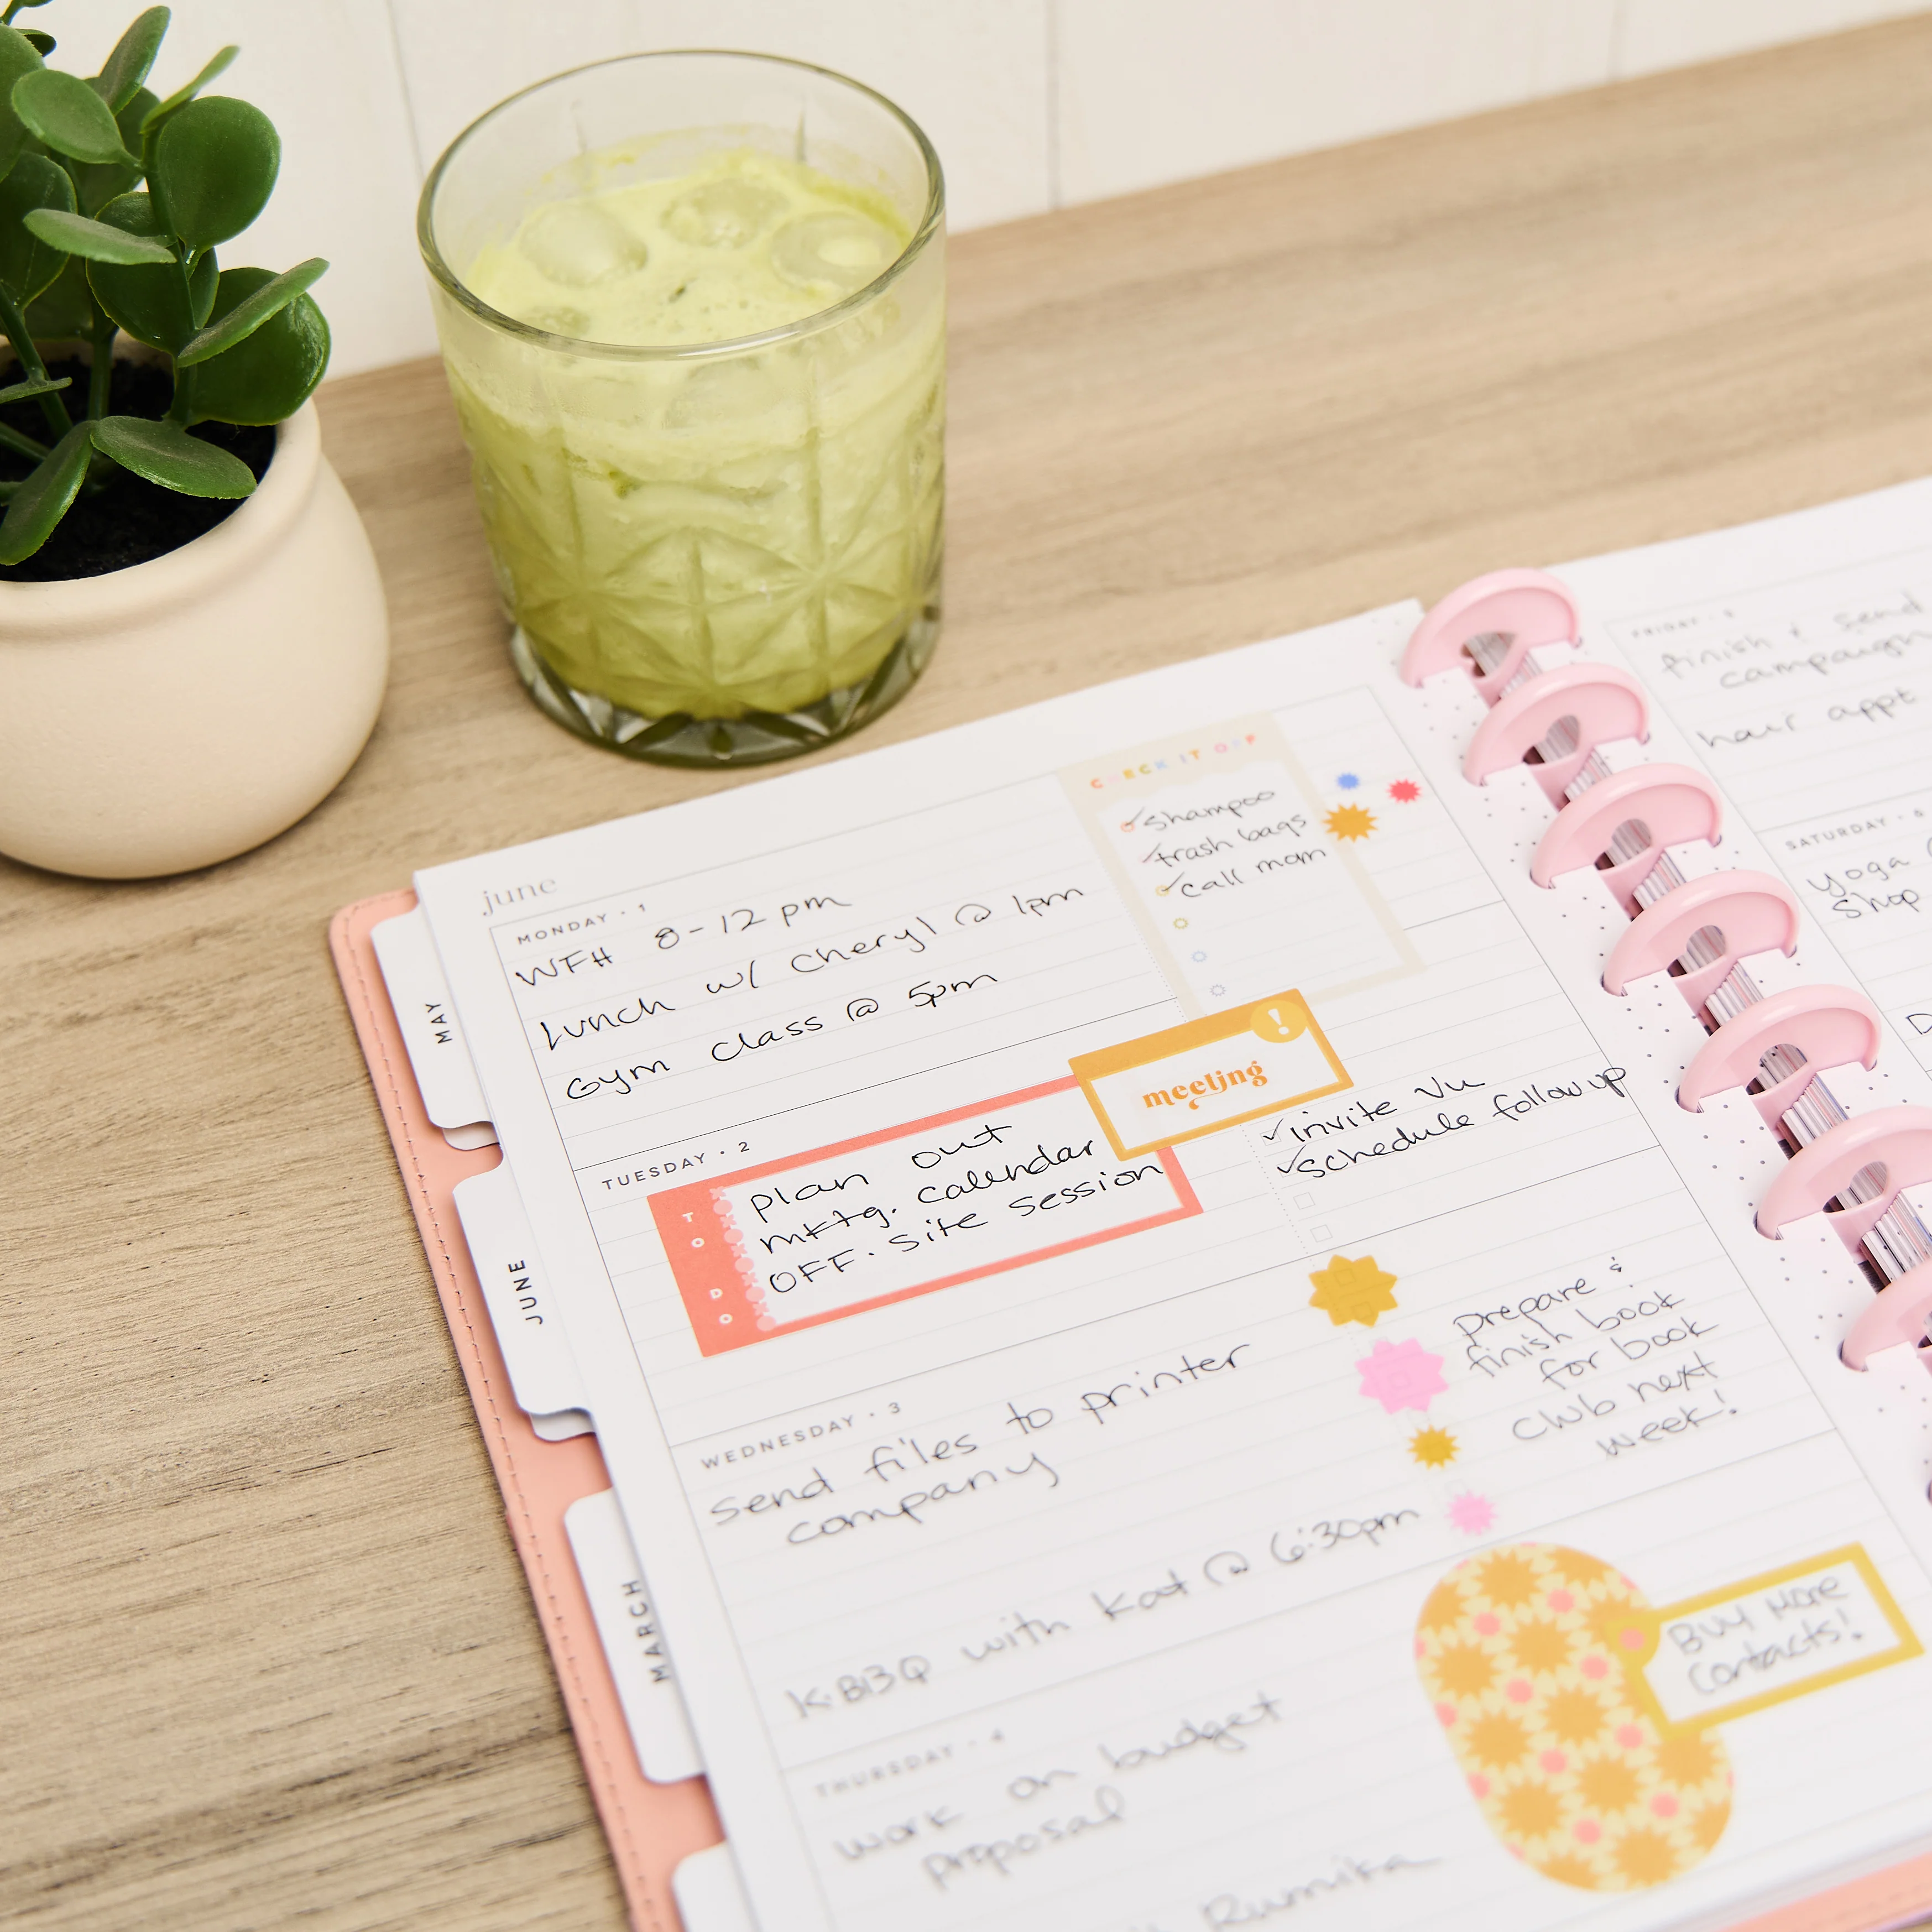 MAY
JUNE
MARCH
june
MONDAY · 1
WFH 8-12 pm
Lunch w/ Cheryl @ 1pm
Gym class @ 5pm
CHECK IT OFF
shampoo
trash bags
call mom
TUESDAY · 2
TO DO
plan out
mktg. calendar
OFF·site session
!
meeting
invite Vu
schedule follow up
WEDNESDAY · 3
Send files to printer
company
KBBQ with Kat @ 6:30pm
prepare &
finish book
for book
club next
week!
THURSDAY · 4
work on budget
proposal
Rumika
BUY MORE
Contacts!
FRIDAY · 5
finish & send
campaign
hair appt
SATURDAY · 6
yoga
shop